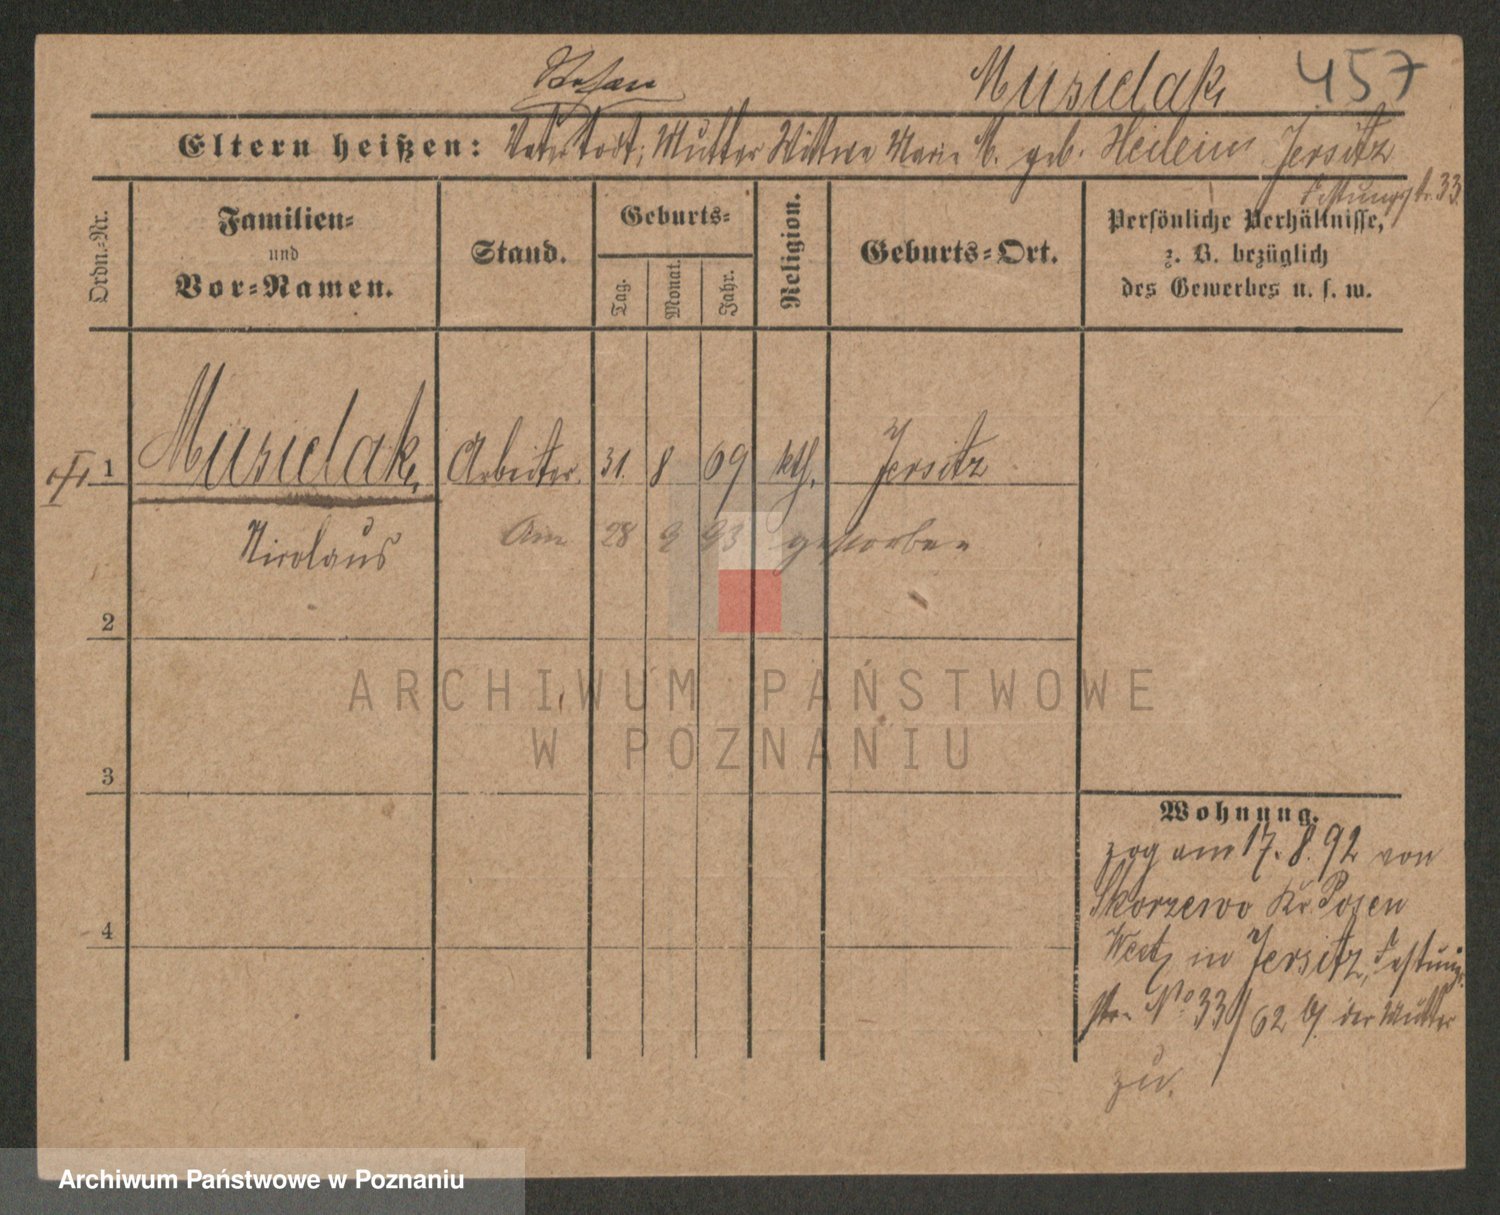 Stefan
Musielak 457
Eltern heißen: Vater todt; Mutter Wittwe Marie M. geb. Heilein Jersitz
Festungsstr. 33.
Ordn.-Nr.
Familien-
und
Vor-Namen.
Stand.
Geburts-
Tag.
Monat.
Jahr.
Religion.
Geburts-Ort.
Persönliche Verhältnisse,
z. B. bezüglich
des Gewerbes u. s. w.
1 Musielak, Arbeiter 31. 8 69 kth. Jersitz
Nicolaus Am 28 9 93 gestorben
2
3
4
Wohnung.
zog am 17. 8. 92 von
Skorzewo Kr. Posen
West in Jersitz, Festungs-
str. No 33/62 b. der Mutter
zu.
ARCHIWUM PAŃSTWOWE
W POZNANIU
Archiwum Państwowe w Poznaniu